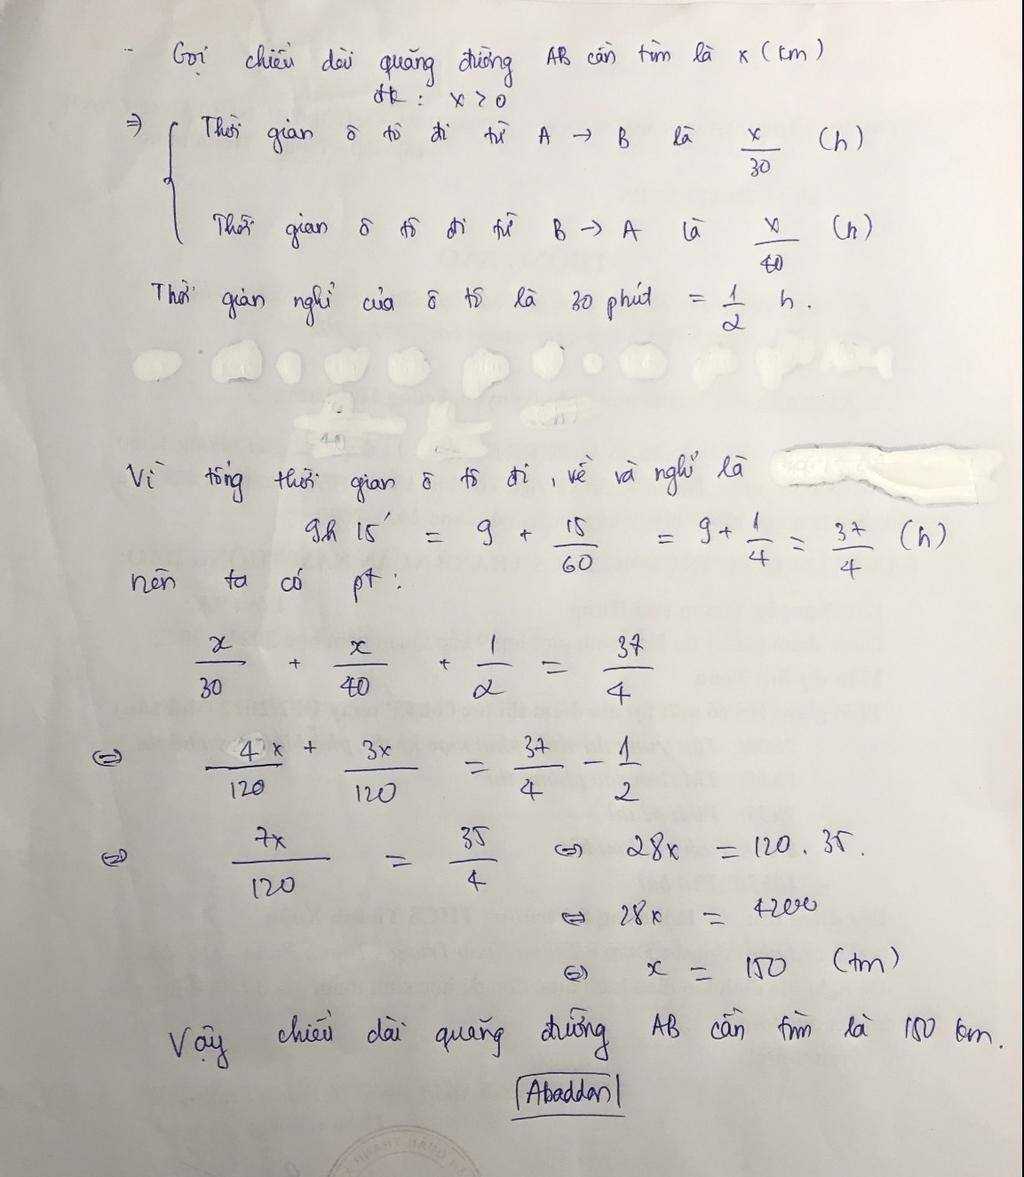 - Gọi chiều dài quãng đường AB cần tìm là x (km)
đk : x > 0
⇒ { Thời gian ô tô đi từ A → B là x/30 (h)
Thời gian ô tô đi từ B → A là x/40 (h)
Thời gian nghỉ của ô tô là 30 phút = 1/2 h.
Vì tổng thời gian ô tô đi, về và nghỉ là
9h 15' = 9 + 15/60 = 9 + 1/4 = 37/4 (h)
nên ta có pt :
x/30 + x/40 + 1/2 = 37/4
⇔ 4x/120 + 3x/120 = 37/4 - 1/2
⇔ 7x/120 = 35/4 ⇔ 28x = 120 . 35.
⇔ 28x = 4200
⇔ x = 150 (tm)
Vậy chiều dài quãng đường AB cần tìm là 150 km.
Abaddon